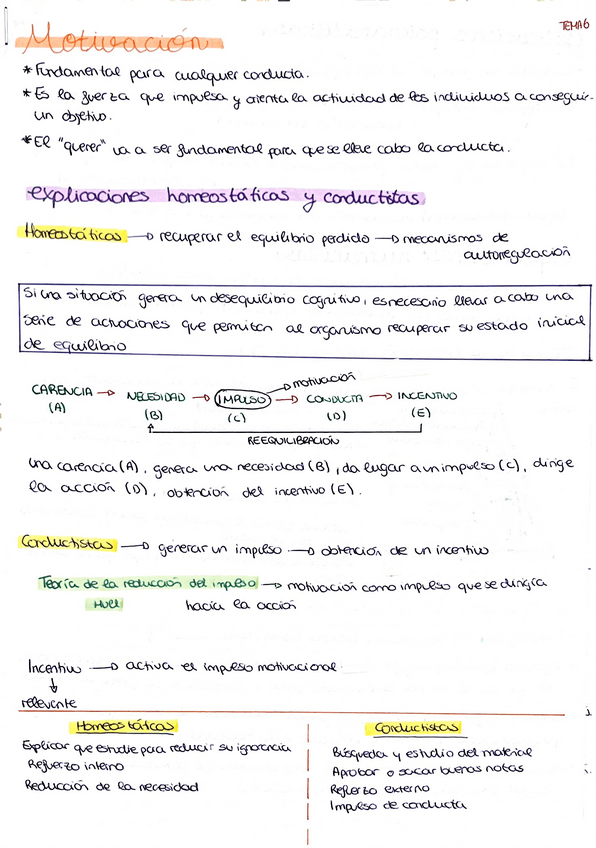 TEMA 6
Motivación
* Fundamental para cualquer conducta.
* Es la fuerza que impulsa y orienta la actividad de los individuos a conseguir
un objetivo.
* El "querer" va a ser fundamental para que se lleve cabo la conducta.
explicaciones homeostáticas y conductistas
Homeostáticas → recuperar el equilibrio perdido → mecanismos de
autorregulación
Si una situación genera un desequilibrio cognitivo, es necesario llevar a cabo una
serie de actuaciones que permiten al organismo recuperar su estado inicial
de equilibrio
motivación
CARENCIA → NECESIDAD → IMPULSO → CONDUCTA → INCENTIVO
(A) (B) (C) (D) (E)
REEQUILIBRACIÓN
una carencia (A), genera una necesidad (B), da lugar a un impulso (C), dirige
la acción (D), obtención del incentivo (E).
Conductistas → generar un impulso → obtención de un incentivo
Teoría de la reducción del impulso → motivación como impulso que se dirigía
Hull hacia la acción
Incentivo → activa el impulso motivacional.
↓
relevante
Homeostáticas
Explicar que estudie para reducir su ignorancia
Refuerzo interno
Reducción de la necesidad
Conductistas
Búsqueda y estudio del material
Aprobar o sacar buenas notas
Refuerzo externo
Impulso de conducta